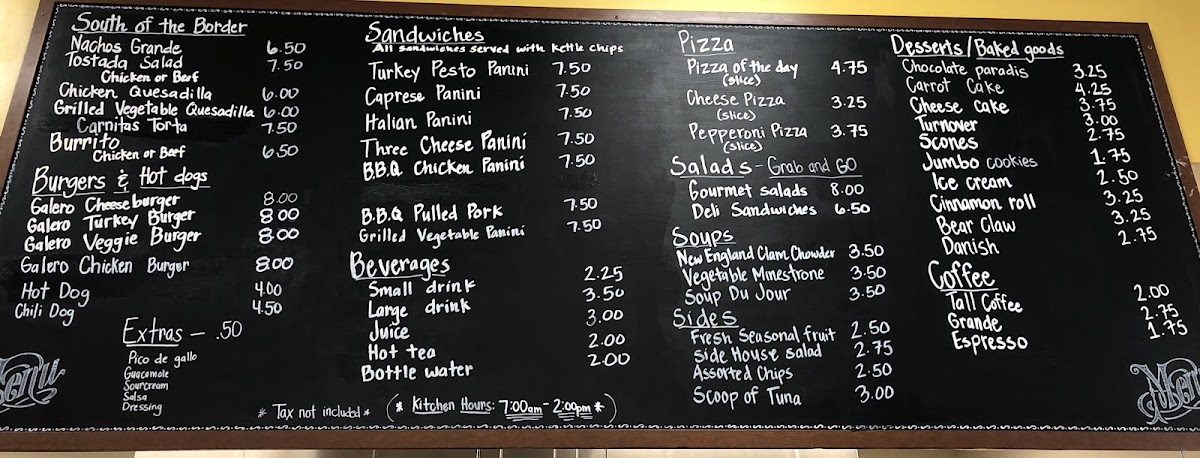 South of the Border
Nachos Grande 6.50
Tostada Salad 7.50
Chicken or Beef
Chicken Quesadilla 6.00
Grilled Vegetable Quesadilla 6.00
Carnitas Torta 7.50
Burrito
Chicken or Beef 6.50
Burgers & Hot dogs
Galero Cheeseburger 8.00
Galero Turkey Burger 8.00
Galero Veggie Burger 8.00
Galero Chicken Burger 8.00
Hot Dog 4.00
Chili Dog 4.50
Extras - .50
Pico de gallo
Guacamole
Sourcream
Salsa
Dressing
Menu
Sandwiches
All sandwiches served with kettle chips
Turkey Pesto Panini 7.50
Caprese Panini 7.50
Italian Panini 7.50
Three Cheese Panini 7.50
B.B.Q Chicken Panini 7.50
B.B.Q Pulled Pork 7.50
Grilled Vegetable Panini 7.50
Beverages
Small drink 2.25
Large drink 3.50
Juice 3.00
Hot tea 2.00
Bottle water 2.00
* Tax not included *
(* Kitchen Hours: 7:00am - 2:00pm *)
Pizza
Pizza of the day 4.75
(slice)
Cheese Pizza 3.25
(slice)
Pepperoni Pizza 3.75
(slice)
Salads - Grab and GO
Gourmet salads 8.00
Deli Sandwiches 6.50
Soups
New England Clam Chowder 3.50
Vegetable Minestrone 3.50
Soup Du Jour 3.50
Sides
Fresh Seasonal fruit 2.50
Side House salad 2.75
Assorted Chips 2.50
Scoop of Tuna 3.00
Desserts/Baked goods
Chocolate paradis 3.25
Carrot Cake 4.25
Cheese cake 3.75
Turnover 3.00
Scones 2.75
Jumbo cookies 1.75
Ice cream 2.50
Cinnamon roll 3.25
Bear Claw 3.25
Danish 2.75
Coffee
Tall Coffee 2.00
Grande 2.75
Espresso 1.75
Men